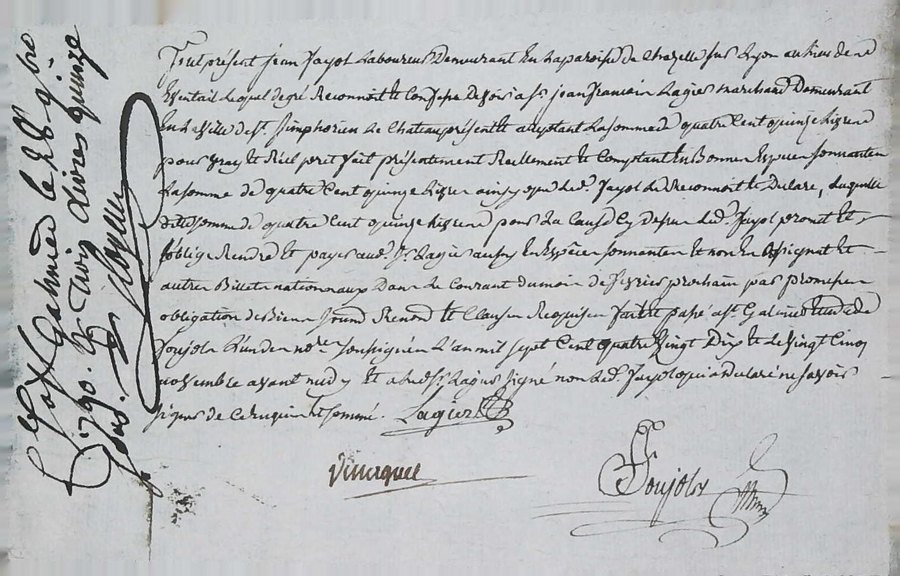 Fut présent jean Jayol Laboureur Demeurant En La paroisse de Chazelle sur Lyon au lieu de
Lequel de gré Reconnoit Et Confesse Devoir a Sr. jean francois Lagier marchand Demeurant
En La ville de St. Simphorien Le Chateau présent Et acceptant La somme de quatre Cent quinze Livres
pour vray Et Réel pret fait présentement Reellement Et Comptant En Bonnes Especes sonnantes
La somme de quatre Cent quinze Livres ainsy que Led. Jayol Le Reconnoit Et Declare, Laquelle
ditte somme de quatre Cent quinze Livres pour La Cause Cy Dessus Led. Jayol promet Et
s'oblige Rendre Et payer aud. Sr. Lagier aussy En Espèces sonnantes Et non En assignat Et
autres Billets nationnaux Dans Le Courant du mois de fevrier prochain par promesse
obligation de Biens Soumd. Renond. Et Clauses Requises fait Et passé a St. Galmier Etude de
Soujols L'un des nores. soussignés L'an mil sept Cent quatre Vingt Dix Et Le Vingt Cinq
novembre avant midy Et a Led. Sr. Lagier signé non Led. Jayol qui a Declaré ne savoir
signer de Ce Enquis Et sommé. Lagier
Soujols
a St. Galmier le 9bre
1790. R. trois livres quinze
sols.